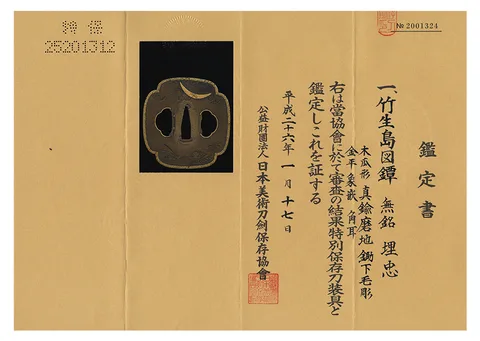 №2001324
鑑定書
一、竹生島図鐔 無銘 埋忠
木瓜形 真鍮磨地 鋤下毛彫
金平象嵌 角耳
右は當協會に於て審査の結果特別保存刀装具と
鑑定しこれを証する
平成二十六年一月十七日
公益財團法人 日本美術刀劍保存協會
特保
25201312